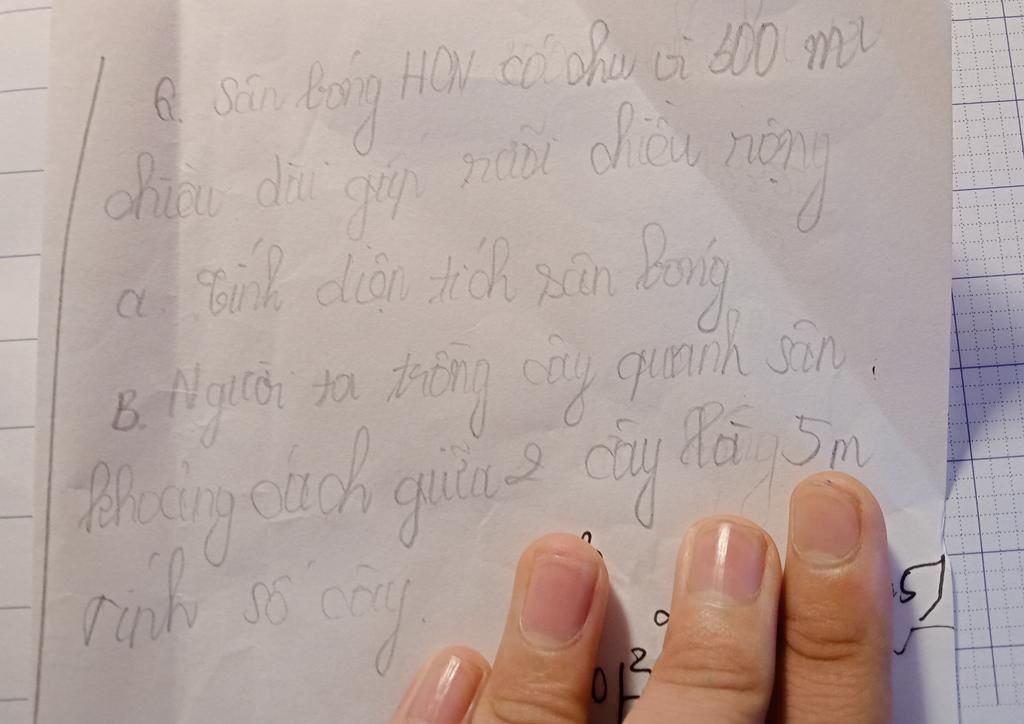 Q. Sân bóng HCN có chu vi 300 m²
chiều dài gấp rưỡi chiều rộng
a. Tính diện tích sân bóng
B. Người ta trồng cây quanh sân.
khoảng cách giữa 2 cây là 5m
Tính số cây.